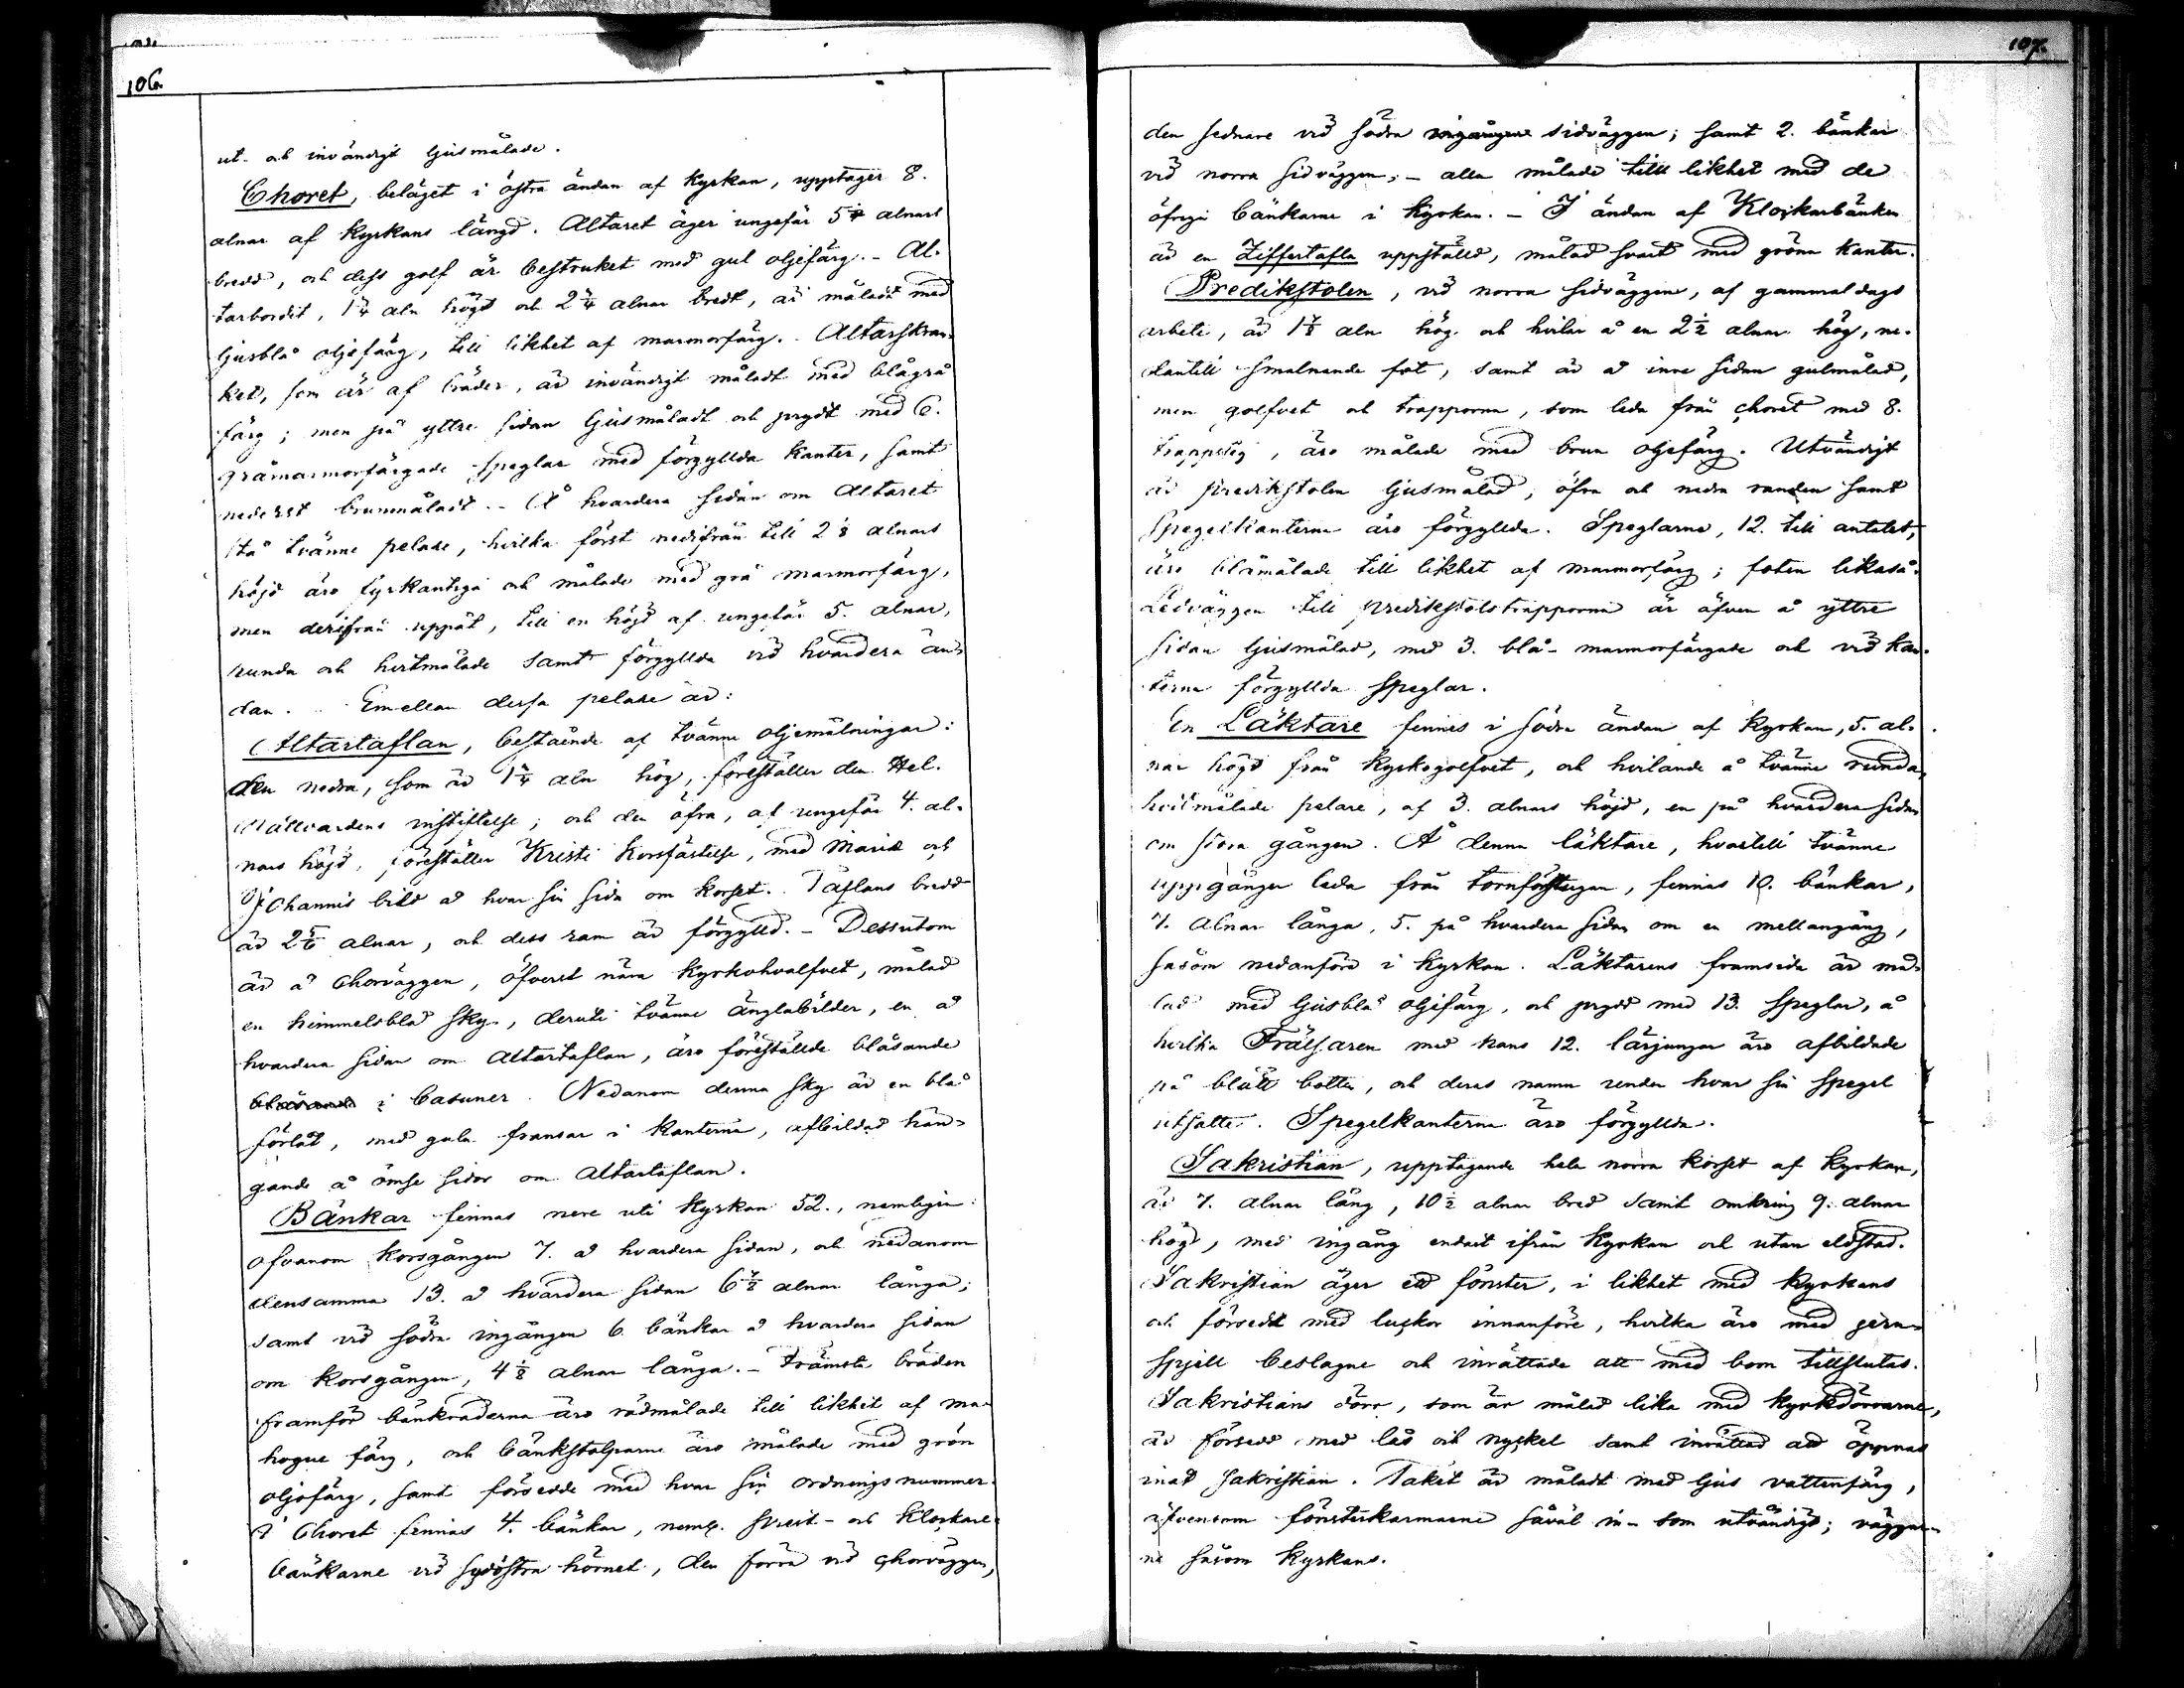 106.
ut- och invändigt ljusmålade.
Choret, beläget i östra ändan af Kyrkan, upptager 8.
alnar af Kyrkans längd. Altaret äger ungefär alnars
bredd, och dess golf är bestruket med gul oljefärg. - Al-
tarbordet, 1¼ aln högt och 2¾ alnar bredt, är måladt med
ljusblå oljefärg, till likhet af marmorfärg. - Altarskran-
ket, som är af bräder, är invändigt måladt med blågrå
färg; men på yttre sidan ljusmåladt och prydt med 6.
gråmarmorfärgade speglar med förgyllda Kanter, samt
nederst brunmåladt. - Å hvardera sidan om Altaret
stå tvänne pelare, hvilka först nedifrån till 2⅛ alnars
höjd äro fyrkantiga och målade med grå marmorfärg,
men derifrån uppåt, till en höjd af ungefär 5. alnar,
runda och hvitmålade samt förgyllda vid hvardera än-
dan. Emellan dessa pelare är:
Altartaflan, bestående af tvänne oljemålningar:
den nedra, som är 1¼ aln hög, föreställer den Hel.
Nattvardens instiftelse; och den öfra, af ungefär 4. al-
nars höjd, föreställer Kristi Korsfästelse, med Mariæ och
Johannis bild å hvar sin sida om Korset. Taflans bredd
är alnar, och dess ram är förgylld. - Dessutom
är å chorväggen, öfverst nära Kyrkohvalfvet, målad
en himmelsblå sky, deruti tvänne änglabilder, en å
hvardera sidan om Altartaflan, äro föreställde blåsande
i basuner. Nedanom denna sky är en blå
förlåt, med gula fransar i Kanterna, afbildad hän-
gande å ömse sidor om Altartaflan.
Bänkar finnas nere uti Kyrkan 52., nemligen:
ofvanom Korsgången 7. å hvardera sidan, och nedanom
densamma 13. å hvardera sidan 6⅞ alnar långa;
samt vid södra ingången 6. bänkar å hvardera sidan
om Korsgången, 4⅛ alnar långa. - Främste bräden
framför bänkraderna äro rödmålade till likhet af ma-
hogne färg, och bänkstolparne äro målade med grön
oljefärg, samt försedde med hvar sin ordningsnummer.
I Choret finnas 4. bänkar, neml. Skrift- och Klockare-
bänkarne vid sydöstra hörnet, den förra vid chorväggen,
107.
den sednare vid södra sidväggen; samt 2. bänkar
vid norra sidväggen; - alla målade till likhet med de
öfriga bänkarne i Kyrkan. - I ändan af Klockarbänken
är en Ziffertafla uppställd, målad svart med gröna Kanter.
Predikstolen, vid norra sidväggen, af gammaldags
arbete, är 1⅞ aln hög och hvilar å en 2½ alnar hög, ne-
dantill smalnande fot, samt är å inre sidan gulmålad,
men golfvet och trapporna, som leda från choret med 8.
trappsteg, äro målade med brun oljefärg. Utvändigt
är predikstolen ljusmålad; öfra och nedra randen samt
Spegelkanterna äro förgyllda. Speglarne, 12. till antalet,
äro blåmålade till likhet af marmorfärg; foten likaså.
Ledväggen till predikstolstrapporna är äfven å yttre
sidan ljusmålad, med 3. blå-marmorfärgade och vid kan-
terna förgyllda speglar.
En Läktare finnes i södra ändan af Kyrkan, 5. al-
nar högt från Kyrkogolfvet, och hvilande å tvänne runda,
hvitmålade pelare, af 3. alnars höjd, en på hvardera sidan
om stora gången. Å denna läktare, hvartill tvänne
uppgånger leda från tornförstugan, finnas 10. bänkar,
7. alnar långa, 5. på hvardera sidan om en mellangång,
såsom nedanföre i Kyrkan. Läktarens framsida är må-
lad med ljusblå oljefärg, och prydd med 13. speglar, å
hvilka Frälsaren med hans 12. lärjungar äro afbildade
på blått botten, och deras namn under hvar sin spegel
utsatte. Spegelkanterna äro förgyllda.
Sakristian, upptagande hela norra korset af Kyrkan,
är 7. alnar lång, 10½ alnar bred samt omkring 9. alnar
hög, med ingång endast ifrån Kyrkan och utan eldstad.
Sakristian äger ett fönster, i likhet med Kyrkans
och försedt med luckor innanföre, hvilka äro med jern-
spjell beslagne och inrättade att med bom tillslutas.
Sakristians dörr, som är målad lika med Kyrkdörrarne,
är försedd med lås och nyckel samt inrättad att öppnas
inåt sakristian. Taket är måladt med ljus vattenfärg,
äfvensom fönsterkarmarne såväl in- som utvändigt; väggar-
ne såsom Kyrkans.